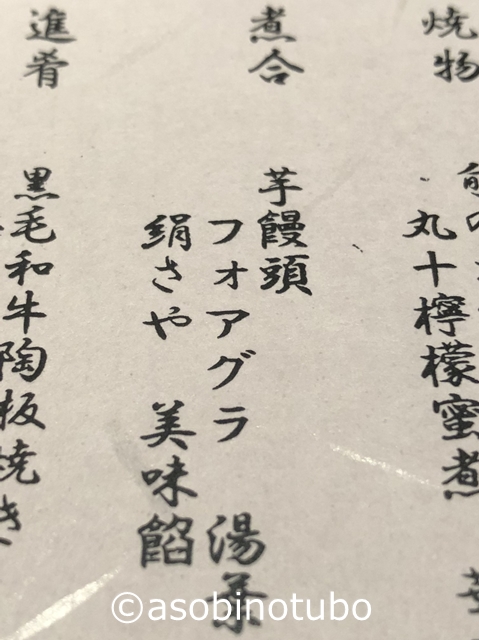 焼物
丸十檸檬蜜煮
煮合
芋饅頭
フォアグラ 湯葉
絹さや 美味餡
進肴
黒毛和牛陶板焼き
©asobinotubo